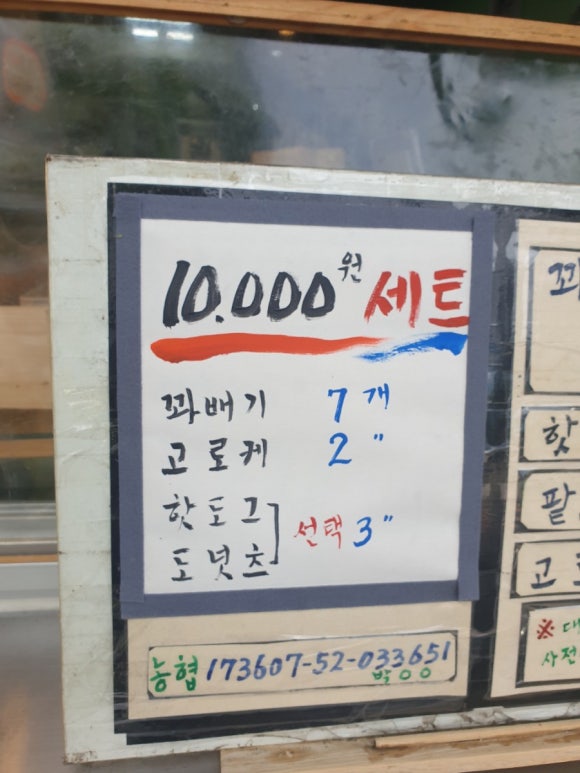 10.000원 세트
꽈배기 7개
고로케 2"
핫도그
도넛츠 선택 3"
농협 173607-52-033651
박ㅇㅇ
꽈
핫
팥
고로
※ 대
사전